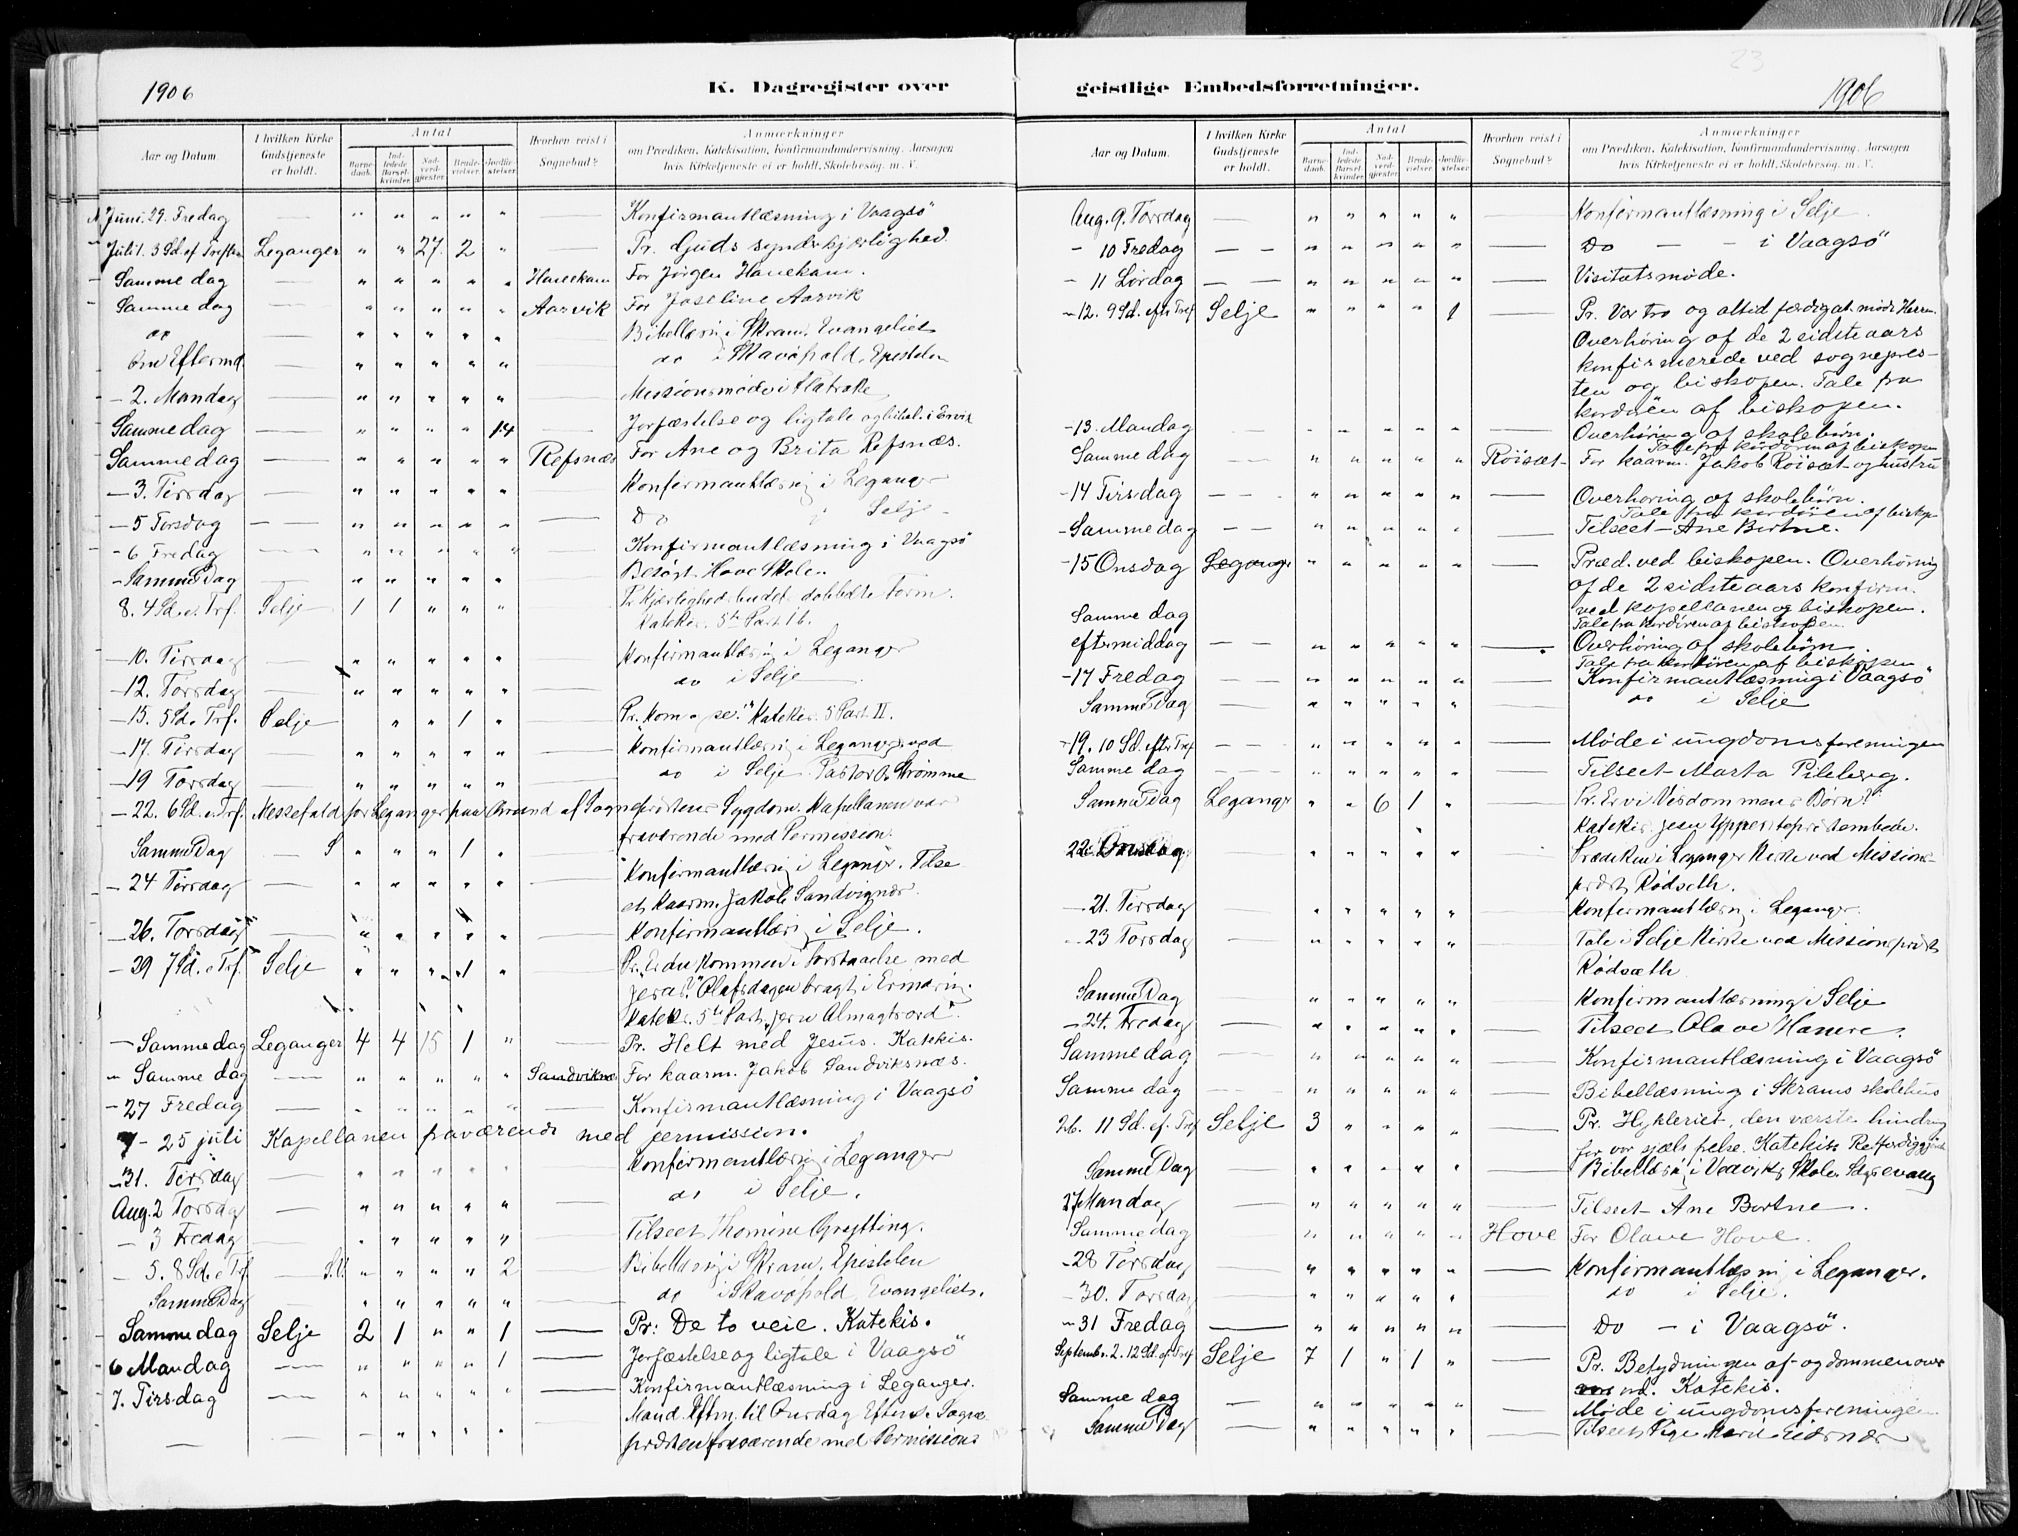 1906
K. Dagregister over
Aar og Datum.
I hvilken Kirke Gudstjeneste er holdt.
Antal
Barnedaab.
Indledede Barselkvinder.
Nadverdgjester.
Brudevielser.
Jordfæstelser.
Hvorhen reist i Sognebud?
Anmærkninger
om Prædiken, Katekisation, Konfirmandundervisning, Aarsagen
hvis Kirketjeneste ei er holdt, Skolebesøg, m. V.
Juni 29. Fredag — " " " " " Konfirmantlæsning i Vaagsö
Juli 1. 3 Sd. ef. Treften Leganger " " 27 2 " — Pr. Guds synderkjærlighed.
Samme dag — " " " " " Hanekam For Jörgen Hanekam.
Samme dag — " " " " " Aarvik For Joseline Aarvik
do " " " " " Bibellæsn. i Skram. Evangeliet
Om Efterm. " " " " " do i Stavöpold. Epistelen
- 2. Mandag — " " " " " Missionsmøde i Flatrake
Samme dag — " " " " 14 — Jorfæstelse og ligtale og bibel. i Ervik
Samme dag — " " " " " Refsnæs For Ane og Brita Refsnæs.
- 3. Tirsdag — " " " " " Konfirmantlæsning i Leganger
- 5 Torsdag — " " " " " — Do i Selje
- 6 Fredag — " " " " " Konfirmantlæsning i Vaagsö
- Samme Dag — " " " " " — Besögt Hove Skole.
8. 4 Sd. e. Trf. Selje 1 1 " " " — Pr. Kjærlighedsbudet dobbelte Form.
Katekis. 5te Part 16.
- 10. Tirsdag — " " " " " — Konfirmantlæsning i Leganger
- 12. Torsdag — " " " " " — do i Selje
- 15. 5 Sd. e. Trf. Selje " " 1 " — Pr. "Kom og se!" Katekis. 5 Part II.
- 17. Tirsdag — " " " " " — Konfirmantlæsning i Leganger ved
- 19 Torsdag — " " " " " — do i Selje Pastor O. Strømme
- 22. 6 Sd. e. Trf. Messefald for Leganger paa Grund af Sogneprestens Sygdom. Kapellanen var
fraværende med Permission.
Samme Dag — S " " " 1 "
- 24 Tirsdag — " " " " " — Konfirmantlæsning i Leganger. Tilse
et kaarm. Jakob Sandvignæs
- 26. Torsdag — " " " " " — Konfirmantlæsn. i Selje.
- 29 7 Sd. e. Trf. Selje " " " 1 " — Pr. "Er du kommen i Forstaaelse med
Jesus?" Olafsdagen bragt i Erindring.
Katekis. 5te Part "Jesu Almagtsord".
- Samme dag Leganger 4 4 15 1 " — Pr. Helt med Jesus. Katekis.
" Samme dag — " " " " " Sandviknæs For kaarm. Jakob Sandviksnæs.
- 27 Fredag — " " " " " — Konfirmantlæsning i Vaagsö
7 - 25 juli Kapellanen fraværende med permission.
- 31. Tirsdag — " " " " " — Konfirmantlæsning i Leganger
Aug. 2 Torsdag — " " " " " — do i Selje.
- 3 Fredag — " " " " " — Tilseet Thomine Grytting.
- 5. 8 Sd. e. Trf. — S.V. " " " " 2 — Bibellæsn. i Skram. Epistelen
Samme Dag — " " " " " — do i Stavöpold. Evangeliet.
Samme dag Selje 2 1 " " 1 — Pr: De to veie. Katekis.
6 Mandag — " " " " 1 — Jorfæstelse og ligtale i Vaagsö
7. Tirsdag — " " " " " — Konfirmantlæsning i Leganger.
— Mand. Eftm. til Onsdag Efterm. Sogne
præsten fraværende med Permission
geistlige Embedsforretninger.
1906
23
Aar og Datum.
I hvilken Kirke Gudstjeneste er holdt.
Antal
Barnedaab.
Indledede Barselkvinder.
Nadverdgjester.
Brudevielser.
Jordfæstelser.
Hvorhen reist i Sognebud?
Anmærkninger
om Prædiken, Katekisation, Konfirmandundervisning, Aarsagen
hvis Kirketjeneste ei er holdt, Skolebesøg, m. V.
Aug. 9. Torsdag — " " " " " — Konfirmantlæsning i Selje
- 10 Fredag — " " " " " — Do — - i Vaagsö
- 11 Lørdag — " " " " " — Visitatsmøde.
- 12. 9 Sd. efter Tref Selje " " " " 1 — Pr. Vor tro og altid færdig at møde Herren.
Overhøring af de 2 sidste aars
konfirmerede ved sognepres-
ten og biskopen. Tale fra
kordören af biskopen.
- 13. Mandag Overhøring af skolebörn.
Tale fra kordören af biskopen
Samme dag — " " " " " Röisæt For kaarm. Jakob Röisæt og hustru
- 14 Tirsdag — " " " " " — Overhøring af skolebörn.
Tale fra kordören af biskop
- Samme dag — " " " " " — Tilseet Ane Bertne.
- 15 Onsdag Leganger " " " " " — Præd. ved biskopen. Overhøring
af de 2 sidste aars konfirm.
ved kapellanen og biskopen.
Tale fra kordören af biskopen.
Samme dag
eftermiddag — " " " " " — Overhøring af skolebörn.
Tale fra kordören af biskopen
- 17 Fredag — " " " " " — Konfirmantlæsning i Vaagsö
Samme Dag — " " " " " — do i Selje
- 19. 10 Sd. efter Tref — " " " " " — Møde i ungdomsforeningen
Samme dag — " " " " " — Tilseet Marta Pileberg.
Samme Dag Leganger " " 6 1 " — Pr. Er vi Visdommens Børn?
Katekis. Jesu Ypperstepresteembede.
22 Onsdag — " " " " " — Prædiken i Leganger Kirke ved Missions-
præst Rödseth.
- 21. Tirsdag — " " " " " — Konfirmantlæsn. i Leganger.
- 23 Torsdag — " " " " " — Tale i Selje Kirke ved Missionspræst
Rödsæth.
Samme Dag — " " " " " — Konfirmantlæsning i Selje
- 24. Fredag — " " " " " — Tilseet Olave Hamre.
Samme dag — " " " " " — Konfirmantlæsning i Vaagsö
Samme dag — " " " " " — Bibellæsning i Skrams skolehus
26. 11 Sd. ef. Tref Selje 3 " " " " — Pr. Hykleriet, den værste hindring
for vor sjæls frelse. Katekise Retfærdiggjörelse
Samme Dag — " " " " " — Bibellæsn. i Vedviks Skole. Dagsevang
27 Mandag — " " " " " — Tilseet Ane Bertne.
Samme dag " " " " " Hove For Olave Hove.
- 28 Tirsdag — " " " " " — Konfirmantlæsning i Leganger.
- 30. Torsdag — " " " " " — do i Selje.
- 31 Fredag — " " " " " — Do — i Vaagsö.
Septembr. 2. 12 Sd. ef. Tref Selje 7 1 " 1 " — Pr. Betydningen af ogdommen over
ord. Katekis.
Samme dag — " " " " " — Møde i ungdomsforeningen
Samme Dag — " " " " " — Tilseet Pige Marie